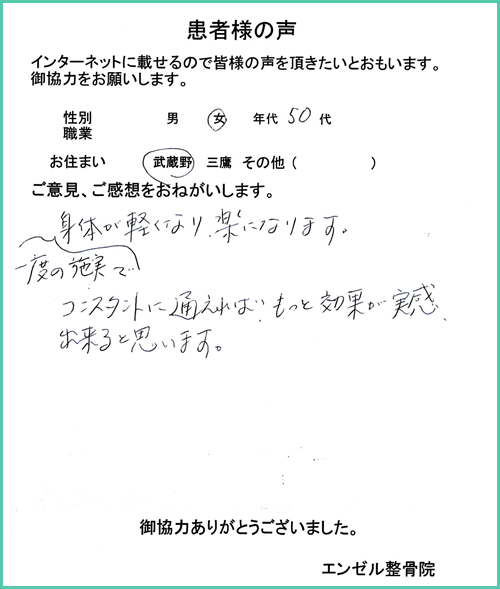 患者様の声
インターネットに載せるので皆様の声を頂きたいとおもいます。
御協力をお願いします。
性別 男 女 年代 50 代
職業
お住まい 武蔵野 三鷹 その他 ( )
ご意見、ご感想をおねがいします。
身体が軽くなり、楽になります。
一度の施実で
コンスタントに通えれば、もっと効果が実感
出来ると思います。
御協力ありがとうございました。
エンゼル整骨院